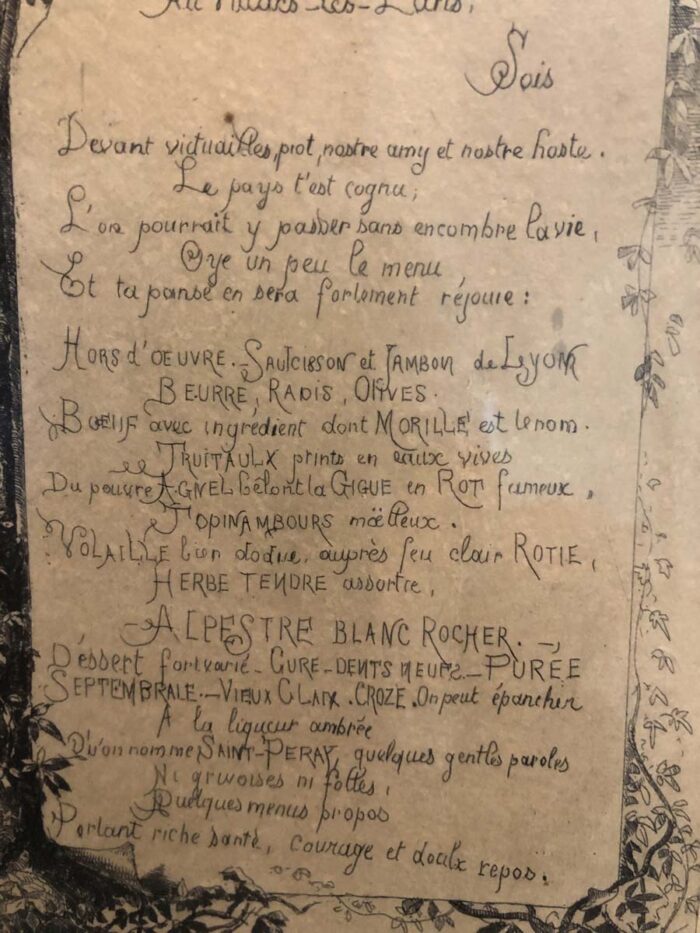 Au Villars-les-Lans,
Sois
Devant victuailles, piot, nostre amy et nostre hoste.
Le pays t'est cognu,
L'on pourrait y passer sans encombre la vie,
Oye un peu le menu,
Et ta panse en sera fortement réjouie :
HORS d'OEUVRE. SAUCISSON et JAMBON de LYON
BEURRE, RADIS, OLIVES.
BOEUF avec ingrédient dont MORILLE est le nom.
TRUITAULX prints en eaux vives
Du pouvre AGNEL bélont la GIGUE en ROT fameux,
TOPINAMBOURS mœlleux.
VOLAILLE bien dodue, auprès feu clair ROTIE,
HERBE TENDRE assortie,
ALPESTRE BLANC ROCHER.
Dessert fort varié - CURE-DENTS NEUFS. - PURÉE
SEPTEMBRALE. - VIEUX CLAIX. CROZE. On peut épancher
A la liqueur ambrée
Qu'on nomme SAINT-PERAY, quelques gentles paroles
Ni grivoises ni folles,
Quelques menus propos
Portant riche santé, courage et doulx repos.